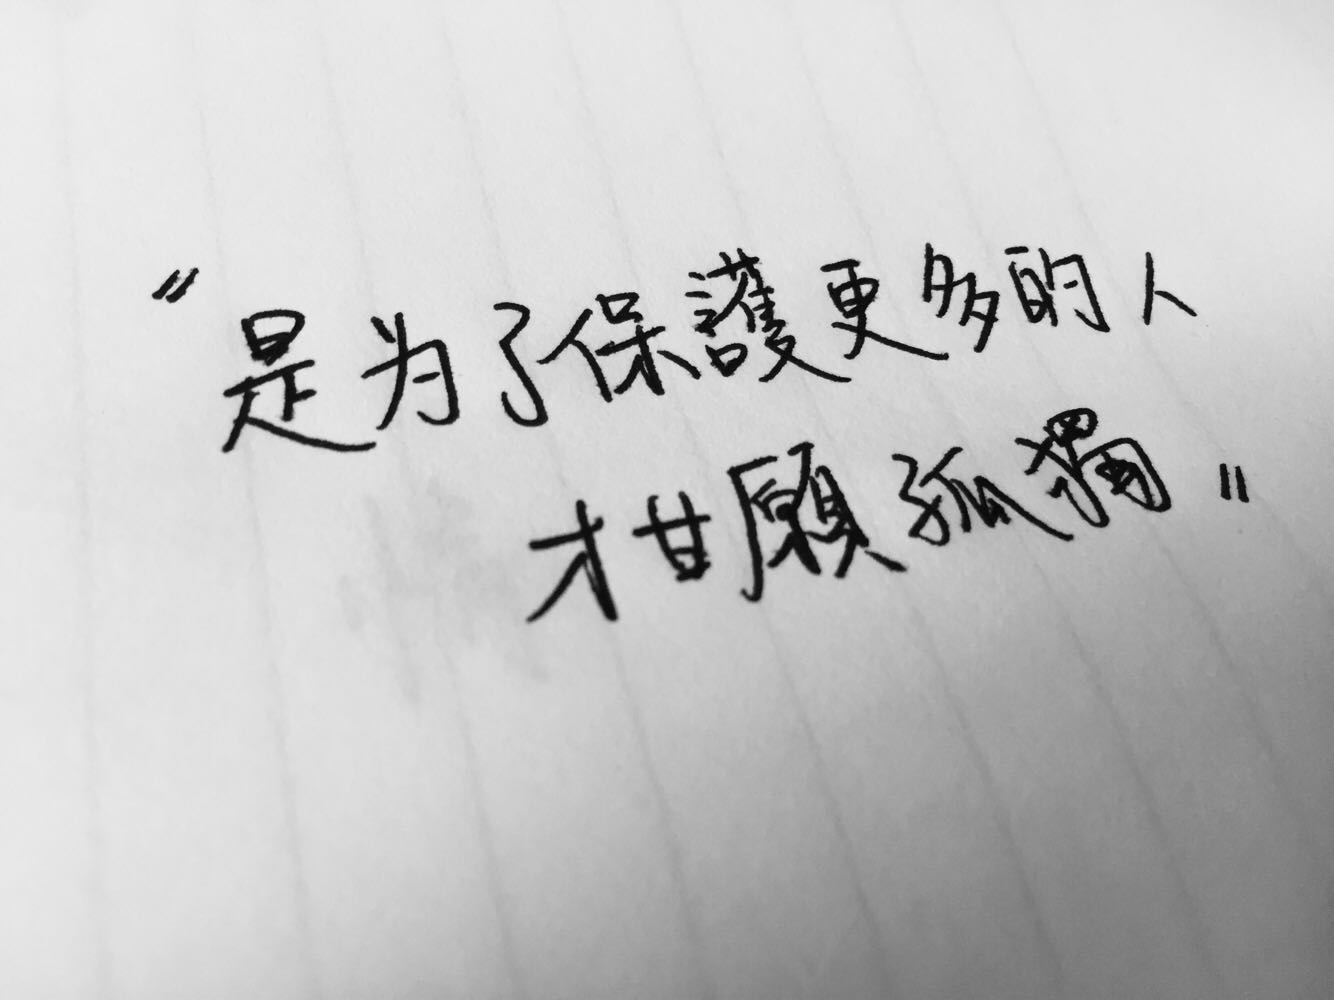 "是为了保護更多的人
才甘願孤獨"